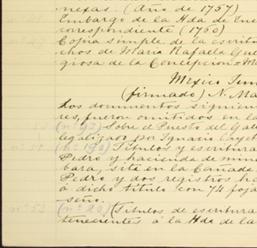 nexas. (Año de 1757)
Embargo de la Hda de Ene
correspondiente (1760)
Copia simple de la escritu
chos de Maria Rafaela Gue
giosa de la Concepcion
Mexico Jun
(firmado) N. Ma
Los documentos siguien
res, fueron omitidos en la
Sobre el Puesto del
alegados por Ignacio
Titulos y escritura
Pedro y hacienda de mina
bara, sita en la Cañada
Pedro y dos registros
á dicho titulo con 74 foja
seño.
Titulos de escritura
tenecientes á la Hda de la